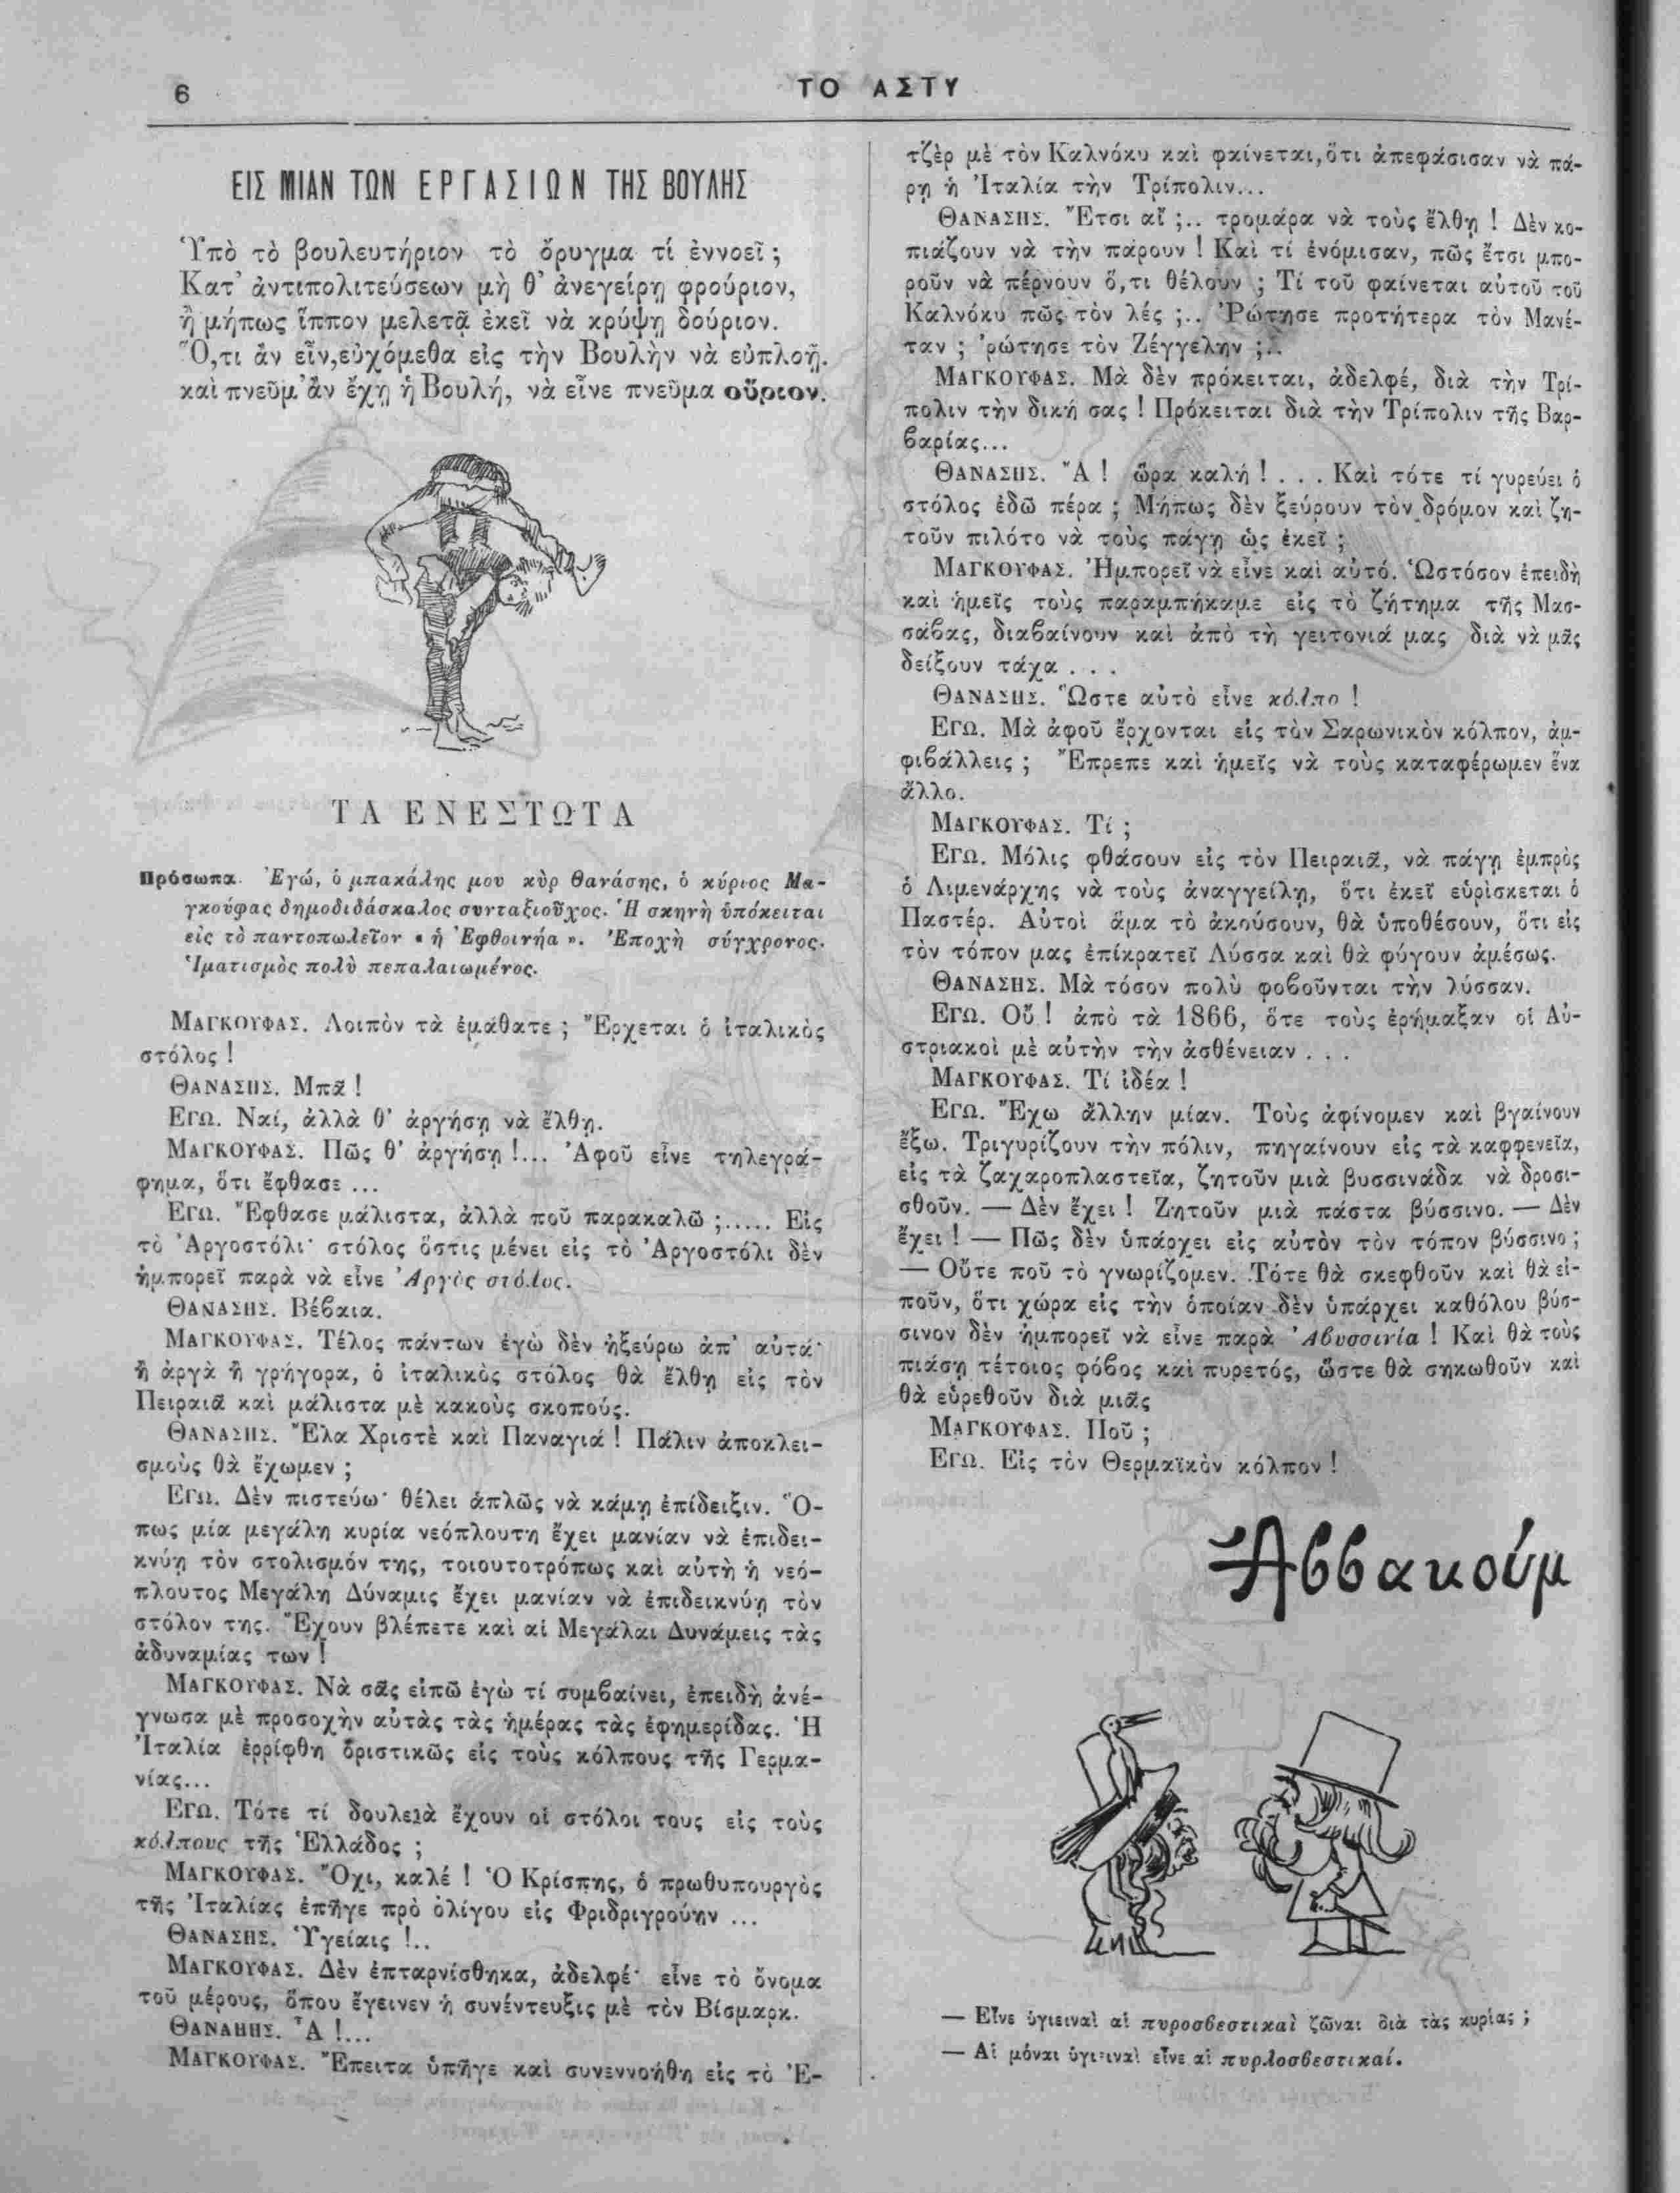 6
ΤΟ ΑΣΤΥ
ΕΙΣ ΜΙΑΝ ΤΩΝ ΕΡΓΑΣΙΩΝ ΤΗΣ ΒΟΥΛΗΣ
Ὑπὸ τὸ βουλευτήριον τὸ ὄρυγμα τί ἐννοεῖ ;
Κατ' ἀντιπολιτεύσεων μὴ θ' ἀνεγείρῃ φρούριον,
ἢ μήπως ἵππον μελετᾷ ἐκεῖ νὰ κρύψῃ δούριον.
Ὅ,τι ἂν εἶν,εὐχόμεθα εἰς τὴν Βουλὴν νὰ εὐπλοῇ.
καὶ πνεῦμ' ἂν ἔχῃ ἡ Βουλή, νὰ εἶνε πνεῦμα οὔριον.
ΤΑ ΕΝΕΣΤΩΤΑ
Πρόσωπα. Ἐγώ, ὁ μπακάλης μου κὺρ Θανάσης, ὁ κύριος Μα-
γκούφας δημοδιδάσκαλος συνταξιοῦχος. Ἡ σκηνὴ ὑπόκειται
εἰς τὸ παντοπωλεῖον « ἡ Ἐφθοινήα ». Ἐποχὴ σύγχρονος.
Ἱματισμὸς πολὺ πεπαλαιωμένος.
ΜΑΓΚΟΥΦΑΣ. Λοιπὸν τὰ ἐμάθατε ; Ἔρχεται ὁ ἰταλικὸς
στόλος !
ΘΑΝΑΣΗΣ. Μπᾶ !
ΕΓΩ. Ναί, ἀλλὰ θ' ἀργήσῃ νὰ ἔλθῃ.
ΜΑΓΚΟΥΦΑΣ. Πῶς θ' ἀργήσῃ !... Ἀφοῦ εἶνε τηλεγρά-
φημα, ὅτι ἔφθασε ...
ΕΓΩ. Ἔφθασε μάλιστα, ἀλλὰ ποῦ παρακαλῶ ;..... Εἰς
τὸ Ἀργοστόλι· στόλος ὅστις μένει εἰς τὸ Ἀργοστόλι δὲν
ἠμπορεῖ παρὰ νὰ εἶνε Ἀργὸς στόλος.
ΘΑΝΑΣΗΣ. Βέβαια.
ΜΑΓΚΟΥΦΑΣ. Τέλος πάντων ἐγὼ δὲν ἠξεύρω ἀπ' αὐτά·
ἢ ἀργὰ ἢ γρήγορα, ὁ ἰταλικὸς στόλος θὰ ἔλθῃ εἰς τὸν
Πειραιᾶ καὶ μάλιστα μὲ κακοὺς σκοπούς.
ΘΑΝΑΣΗΣ. Ἔλα Χριστὲ καὶ Παναγιά ! Πάλιν ἀποκλει-
σμοὺς θὰ ἔχωμεν ;
ΕΓΩ. Δὲν πιστεύω· θέλει ἁπλῶς νὰ κάμῃ ἐπίδειξιν. Ὅ-
πως μία μεγάλη κυρία νεόπλουτη ἔχει μανίαν νὰ ἐπιδει-
κνύῃ τὸν στολισμόν της, τοιουτοτρόπως καὶ αὐτὴ ἡ νεό-
πλουτος Μεγάλη Δύναμις ἔχει μανίαν νὰ ἐπιδεικνύῃ τὸν
στόλον της. Ἔχουν βλέπετε καὶ αἱ Μεγάλαι Δυνάμεις τὰς
ἀδυναμίας των !
ΜΑΓΚΟΥΦΑΣ. Νὰ σᾶς εἰπῶ ἐγὼ τί συμβαίνει, ἐπειδὴ ἀνέ-
γνωσα μὲ προσοχὴν αὐτὰς τὰς ἡμέρας τὰς ἐφημερίδας. Ἡ
Ἰταλία ἐρρίφθη ὁριστικῶς εἰς τοὺς κόλπους τῆς Γερμα-
νίας...
ΕΓΩ. Τότε τί δουλειὰ ἔχουν οἱ στόλοι τους εἰς τοὺς
κόλπους τῆς Ἑλλάδος ;
ΜΑΓΚΟΥΦΑΣ. Ὄχι, καλέ ! Ὁ Κρίσπης, ὁ πρωθυπουργὸς
τῆς Ἰταλίας ἐπῆγε πρὸ ὀλίγου εἰς Φριδριγρούην ...
ΘΑΝΑΣΗΣ. Ὑγείαις !..
ΜΑΓΚΟΥΦΑΣ. Δὲν ἐπταρνίσθηκα, ἀδελφέ· εἶνε τὸ ὄνομα
τοῦ μέρους, ὅπου ἔγεινεν ἡ συνέντευξις μὲ τὸν Βίσμαρκ.
ΘΑΝΑΗΗΣ. Ἆ !...
ΜΑΓΚΟΥΦΑΣ. Ἔπειτα ὑπῆγε καὶ συνεννοήθη εἰς τὸ Ἔ-
τζὲρ μὲ τὸν Καλνόκυ καὶ φαίνεται,ὅτι ἀπεφάσισαν νὰ πά-
ρῃ ἡ Ἰταλία τὴν Τρίπολιν...
ΘΑΝΑΣΗΣ. Ἔτσι αἴ ;.. τρομάρα νὰ τοὺς ἔλθῃ ! Δὲν κο-
πιάζουν νὰ τὴν πάρουν ! Καὶ τί ἐνόμισαν, πῶς ἔτσι μπο-
ροῦν νὰ πέρνουν ὅ,τι θέλουν ; Τί τοῦ φαίνεται αὐτοῦ τοῦ
Καλνόκυ πῶς τὸν λές ;.. Ῥώτησε προτήτερα τὸν Μανέ-
ταν ; 'ρώτησε τὸν Ζέγγελην ;..
ΜΑΓΚΟΥΦΑΣ. Μὰ δὲν πρόκειται, ἀδελφέ, διὰ τὴν Τρί-
πολιν τὴν δική σας ! Πρόκειται διὰ τὴν Τρίπολιν τῆς Βαρ-
βαρίας...
ΘΑΝΑΣΗΣ. Ἄ ! ὥρα καλή ! . . . Καὶ τότε τί γυρεύει ὁ
στόλος ἐδῶ πέρα ; Μήπως δὲν ξεύρουν τὸν δρόμον καὶ ζη-
τοῦν πιλότο νὰ τοὺς πάγῃ ὡς ἐκεῖ ;
ΜΑΓΚΟΥΦΑΣ. Ἠμπορεῖ νὰ εἶνε καὶ αὐτό. Ὡστόσον ἐπειδὴ
καὶ ἡμεῖς τοὺς παραμπήκαμε εἰς τὸ ζήτημα τῆς Μασ-
σάβας, διαβαίνουν καὶ ἀπὸ τὴ γειτονιά μας διὰ νὰ μᾶς
δείξουν τάχα . . .
ΘΑΝΑΣΗΣ. Ὥστε αὐτὸ εἶνε κόλπο !
ΕΓΩ. Μὰ ἀφοῦ ἔρχονται εἰς τὸν Σαρωνικὸν κόλπον, ἀμ-
φιβάλλεις ; Ἔπρεπε καὶ ἡμεῖς νὰ τοὺς καταφέρωμεν ἕνα
ἄλλο.
ΜΑΓΚΟΥΦΑΣ. Τί ;
ΕΓΩ. Μόλις φθάσουν εἰς τὸν Πειραιᾶ, νὰ πάγῃ ἐμπρὸς
ὁ Λιμενάρχης νὰ τοὺς ἀναγγείλῃ, ὅτι ἐκεῖ εὑρίσκεται ὁ
Παστέρ. Αὐτοὶ ἅμα τὸ ἀκούσουν, θὰ ὑποθέσουν, ὅτι εἰς
τὸν τόπον μας ἐπικρατεῖ Λύσσα καὶ θὰ φύγουν ἀμέσως.
ΘΑΝΑΣΗΣ. Μὰ τόσον πολὺ φοβοῦνται τὴν λύσσαν.
ΕΓΩ. Οὔ ! ἀπὸ τὰ 1866, ὅτε τοὺς ἐρήμαξαν οἱ Αὐ-
στριακοὶ μὲ αὐτὴν τὴν ἀσθένειαν . . .
ΜΑΓΚΟΥΦΑΣ. Τί ἰδέα !
ΕΓΩ. Ἔχω ἄλλην μίαν. Τοὺς ἀφίνομεν καὶ βγαίνουν
ἔξω. Τριγυρίζουν τὴν πόλιν, πηγαίνουν εἰς τὰ καφφενεῖα,
εἰς τὰ ζαχαροπλαστεῖα, ζητοῦν μιὰ βυσσινάδα νὰ δροσι-
σθοῦν. — Δὲν ἔχει ! Ζητοῦν μιὰ πάστα βύσσινο. — Δὲν
ἔχει ! — Πῶς δὲν ὑπάρχει εἰς αὐτὸν τὸν τόπον βύσσινο ;
— Οὔτε ποῦ τὸ γνωρίζομεν. Τότε θὰ σκεφθοῦν καὶ θὰ εἰ-
ποῦν, ὅτι χώρα εἰς τὴν ὁποίαν δὲν ὑπάρχει καθόλου βύσ-
σινον δὲν ἠμπορεῖ νὰ εἶνε παρὰ Ἀβυσσινία ! Καὶ θὰ τοὺς
πιάσῃ τέτοιος φόβος καὶ πυρετός, ὥστε θὰ σηκωθοῦν καὶ
θὰ εὑρεθοῦν διὰ μιᾶς
ΜΑΓΚΟΥΦΑΣ. Ποῦ ;
ΕΓΩ. Εἰς τὸν Θερμαϊκὸν κόλπον !
Ἀββακούμ
— Εἶνε ὑγιειναὶ αἱ πυροσβεστικαὶ ζῶναι διὰ τὰς κυρίας ;
— Αἱ μόναι ὑγιειναὶ εἶνε αἱ πυρλοσβεστικαί.